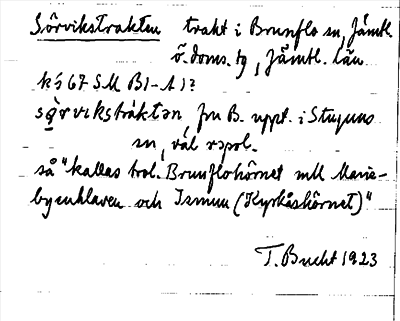 Sörvikstrakten trakt i Brunflo sn, Jämtl.
ö. doms. tg, Jämtl. län
k5 67 S.M B1-A1?
sǫ̀rvikstráktən, frn B. uppt. i Stuguns
sn, väl respl.
så "kallas trol. Brunflohörnet mll Marie-
byenklaven och Ismun (Kyrkåshörnet)"
T. Bucht 1923